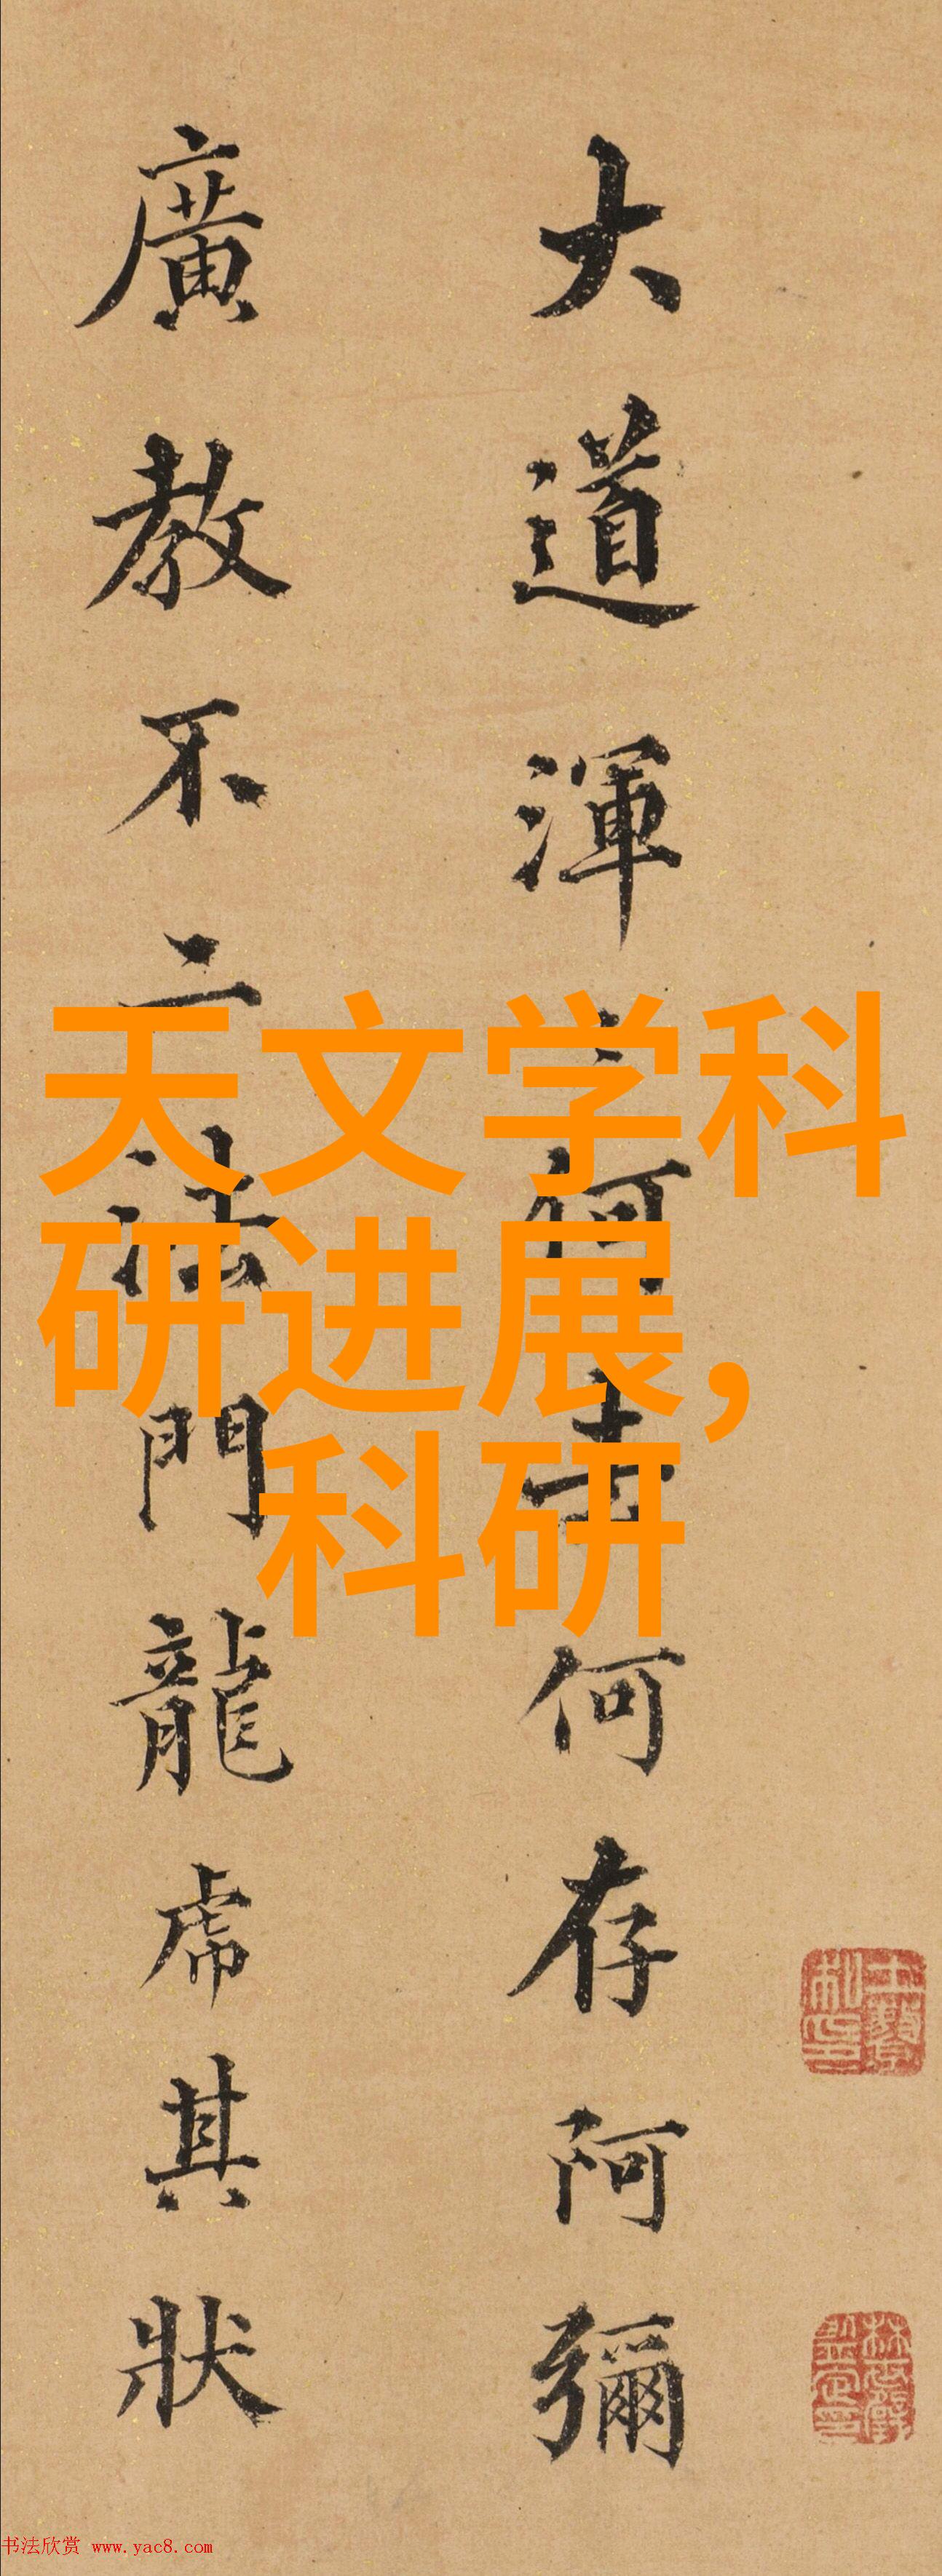 大道渾何去何存阿彌
廣教不二法門龍虎其狀
天文学科
研进展，
科研
书法欣赏 www.yac8.com